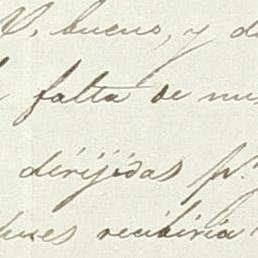 V. bueno, y de
falta de nu
dirijidas p.
pues recibiria